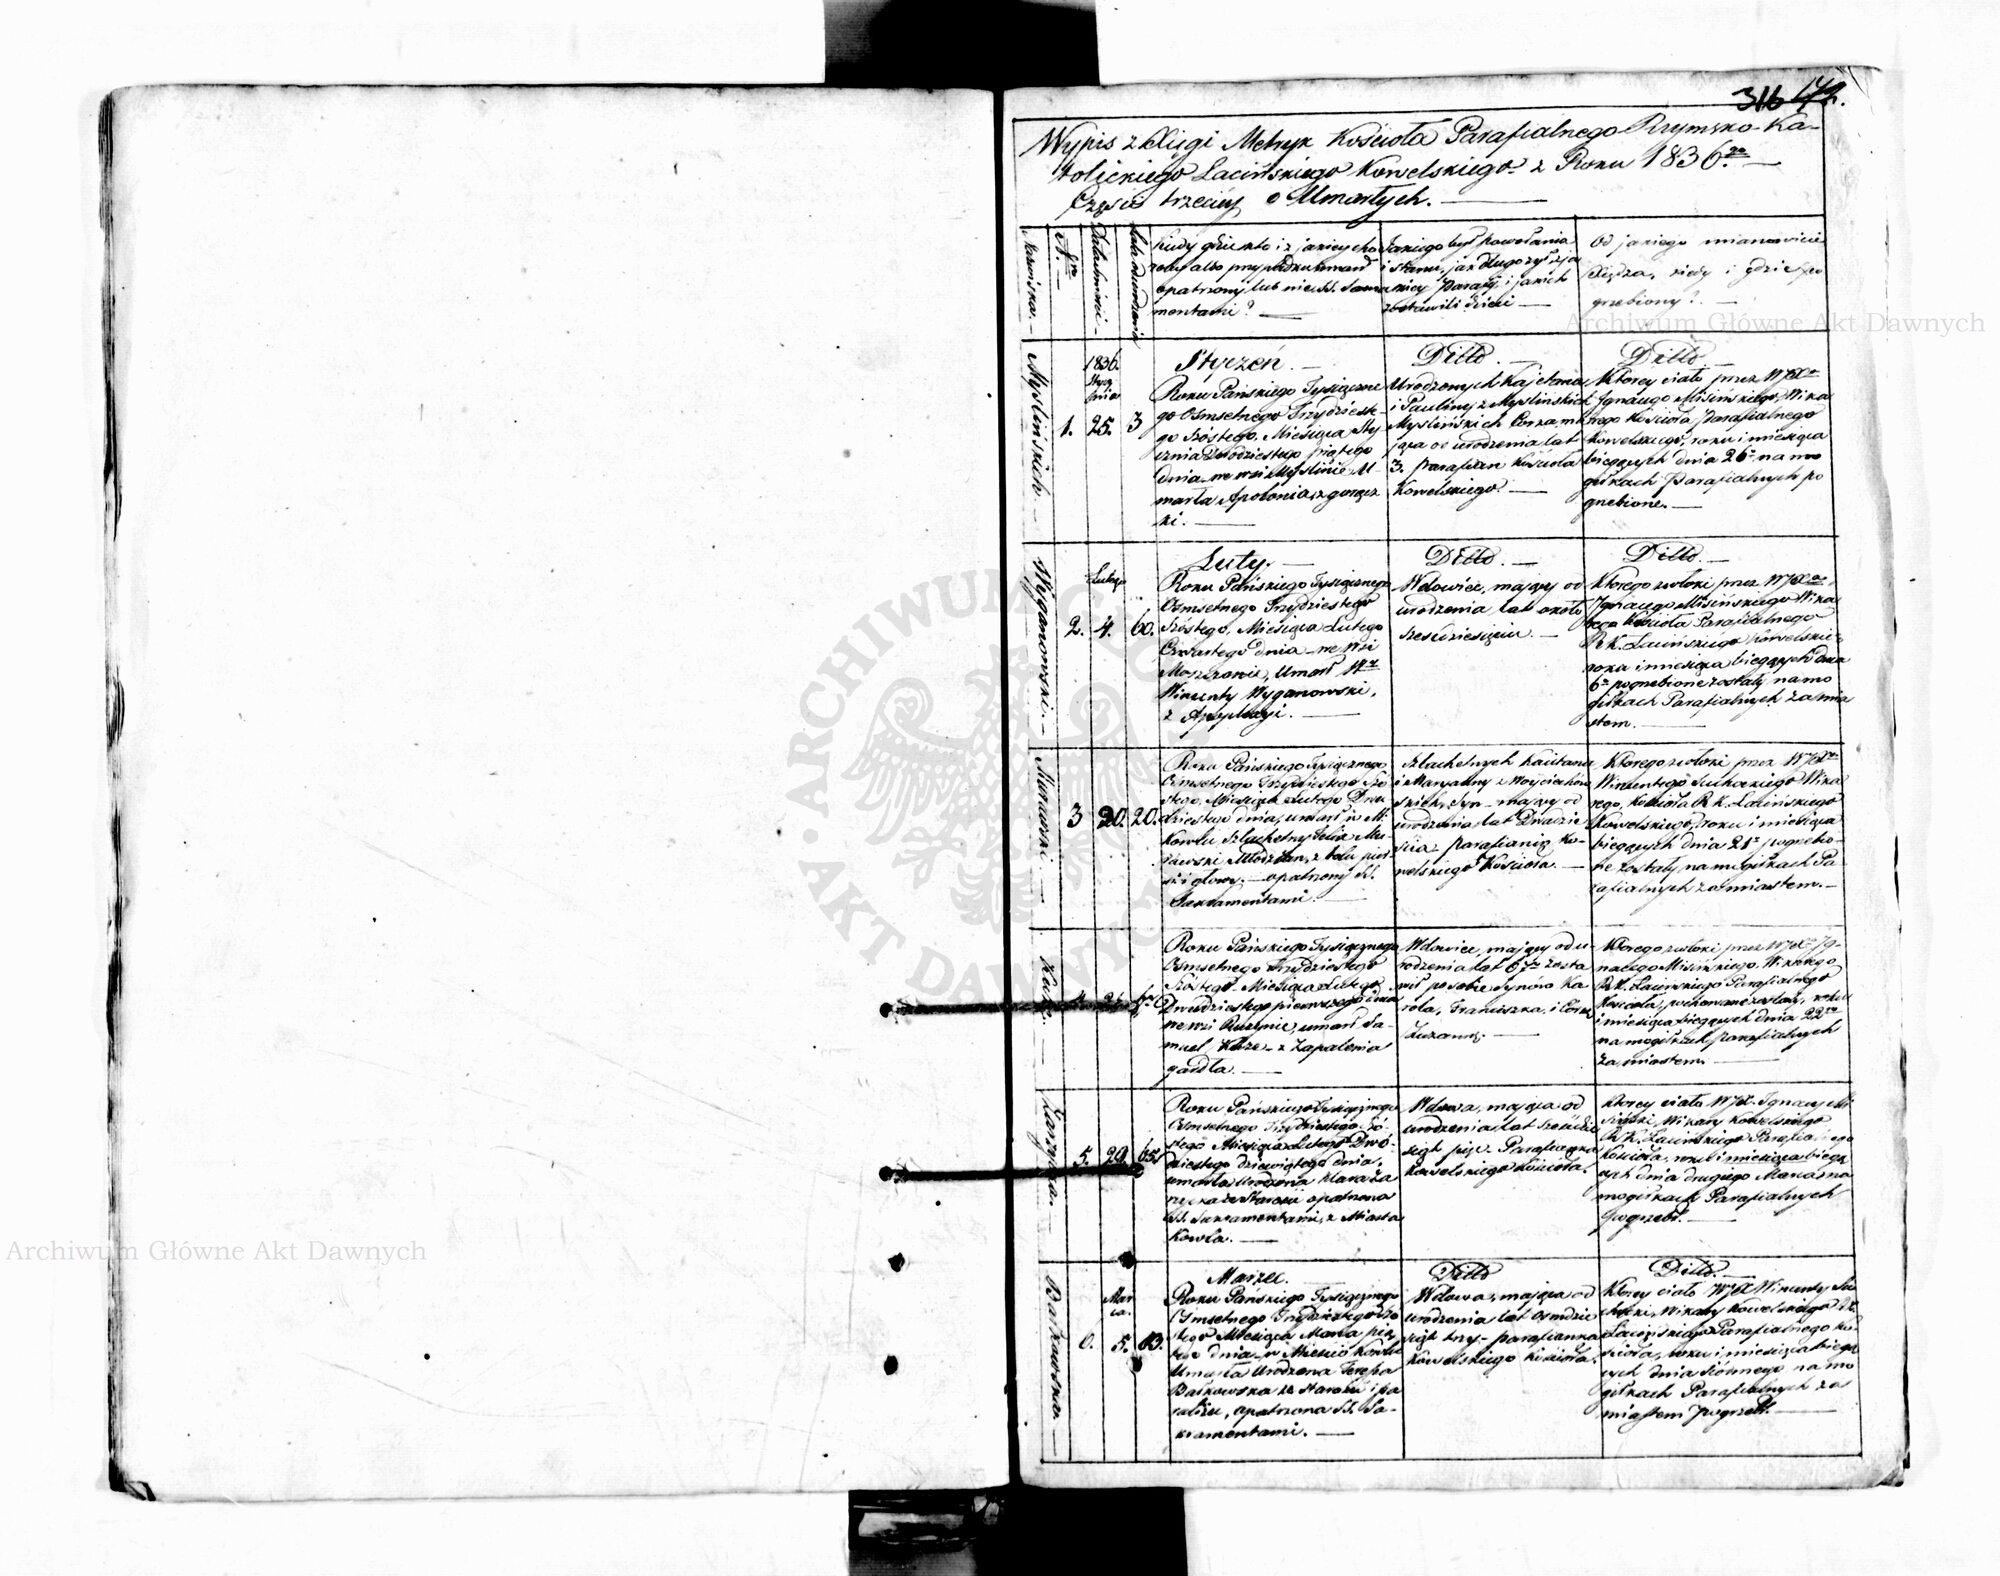 316
Wypis z Xięgi Metryk Kościoła Parafialnego Rzymsko-Ka-
tolickiego Łacińskiego Kowelskiego z Roku 1836.go
Części trzeciey o Umarłych.
Nazwiska
Nro
Data śmierci
Lata urodzenia
Kiedy gdzie kto i z jakiey cho
roby albo przypadku umarł
opatrzony lub nie SS. Sakra
mentami?
Jakiego był powołania
i stanu, jak długo żył, z ja
kiey Parafii i jakich
zostawił dzieci
Od jakiego mianowicie
Xiędza, kiedy i gdzie po
grzebiony?
Archiwum Główne Akt Dawnych
Myślińskich
1836.
Stycz
nia
1. 25. 3
Styczeń.
Roku Pańskiego Tysiączne
go Osmsetnego Trzydzieste-
go Szóstego, Miesiąca Sty
cznia Dwódziestego piątego
dnia we wsi Myślinie U-
marła Apolonia, z gorącz
ki.
Ditto.
Urodzonych Kajetana
i Pauliny z Myślińskich
Myślińskich Corka, ma
jąca od urodzenia lat
3. parafian Kościoła
Kowelskiego.
Ditto
Ktorey ciało przez WJXa
Ignacego Misińskiego, Wika
rego Kościoła Parafialnego
Kowelskiego, roku i miesiąca
bieżących dnia 26o na mo
giłkach Parafialnych po
grzebione.
Wyganowski.
Lutego
2. 4. 60.
Luty.
Roku Pańskiego Tysiącznego
Osmsetnego Trzydziestego
Szóstego, Miesiąca Lutego
Czwartego dnia we Wsi
Moszczonie, Umarł Wny
Wincenty Wyganowski,
z Apoplexyi.
Ditto.
Wdowiec, mający od
urodzenia lat około
sześćdziesięciu.
Ditto
Którego zwłoki przez WJXa
Ignacego Misińskiego Wika
rego Kościoła Parafialnego
R.K. Łacińskiego Kowelskie
roku i miesiąca bieżących dnia
6o pogrzebione zostały na mo
giłkach Parafialnych za mia
stem.
Murawski
3 20. 20.
Roku Pańskiego Tysiącznego
Osmsetnego Trzydziestego Szó
stego, Miesiąca Lutego Dwu
dziestego dnia, umarł w M.
Kowlu Szlachetny Felix Mu-
rawski Młodzian, z bolu pier
si i głowy, opatrzony SS.
Sakramentami.
Szlachetnych Kaietana
i Maryanny z Woyciechow
skich, Syn mający od
urodzenia lat Dwadzie
ścia parafianin Ko-
welskiego Kościoła.
Ktorego zwłoki przez WJXa
Wincentego Suchockiego Wika
rego, Kościoła R.K. Łacińskiego
Kowelskiego, roku i miesiąca
bieżących dnia 21o pogrzebio-
ne zostały na mogiłkach Pa
rafialnych za miastem.
4. 21.
Roku Pańskiego Tysiącznego
Osmsetnego Trzydziestego
Szóstego Miesiąca Lutego
Dwudziestego pierwszego dnia
we wsi umarł Sa-
muel z zapalenia
gardła.
Wdowiec, mający od u-
rodzenia lat zosta
wił po sobie Synow Ka
rola, Franciszka, i Corkę
Zuzannę.
Ktorego zwłoki przez WJXa Ig-
nacego Misińskiego, Wikarego
R.K. Łacińskiego Parafialnego
Kościoła, pochowane zostały, roku
i miesiąca bieżących dnia 22go
na mogiłkach parafialnych
za miastem.
Zarzycka
5. 29. 65.
Roku Pańskiego Tysiącznego
Osmsetnego Trzydziestego Szó-
stego Miesiąca Lutego Dwó-
dziestego dziewiątego dnia,
umarła Urodzona Klara Za
rzycka ze Starości opatrzona
SS. Sakramentami, z Miasta
Kowla.
Wdowa, mająca od
urodzenia lat sześćdzie
siąt pięć. Parafianka
Kowelskiego Kościoła.
Ktorey ciało WJX. Ignacy Mi
siński, Wikary Kowelskiego
R.K. Łacińskiego Parafialnego
Kościoła, roku i miesiąca bieżą
cych dnia drugiego Marca na
mogiłkach Parafialnych
Pogrzebł.
Archiwum Główne Akt Dawnych
Bańkowska
Mar
ca
6. 5. 83.
Marzec.
Roku Pańskiego Tysiącznego
Osmsetnego Trzydziestego Szó
stego Miesiąca Marca pią
tego dnia w Mieście Kowlu
Umarła Urodzona Teressa
Bańkowska ze Starości i pa
raliżu, opatrzona SS. Sa-
kramentami.
Ditto
Wdowa, mająca od
urodzenia lat osmdzie
siąt trzy parafianka
Kowelskiego Kościoła.
Ditto.
Ktorey ciało WJX Wincenty Su
chocki, Wikary Kowelskiego R.K.
Łacińskiego Parafialnego Ko-
ścioła, roku i miesiąca bieżą
cych dnia siódmego na mo
giłkach Parafialnych za
miastem Pogrzebł.
ARCHIWUM GŁÓWNE AKT DAWNYCH